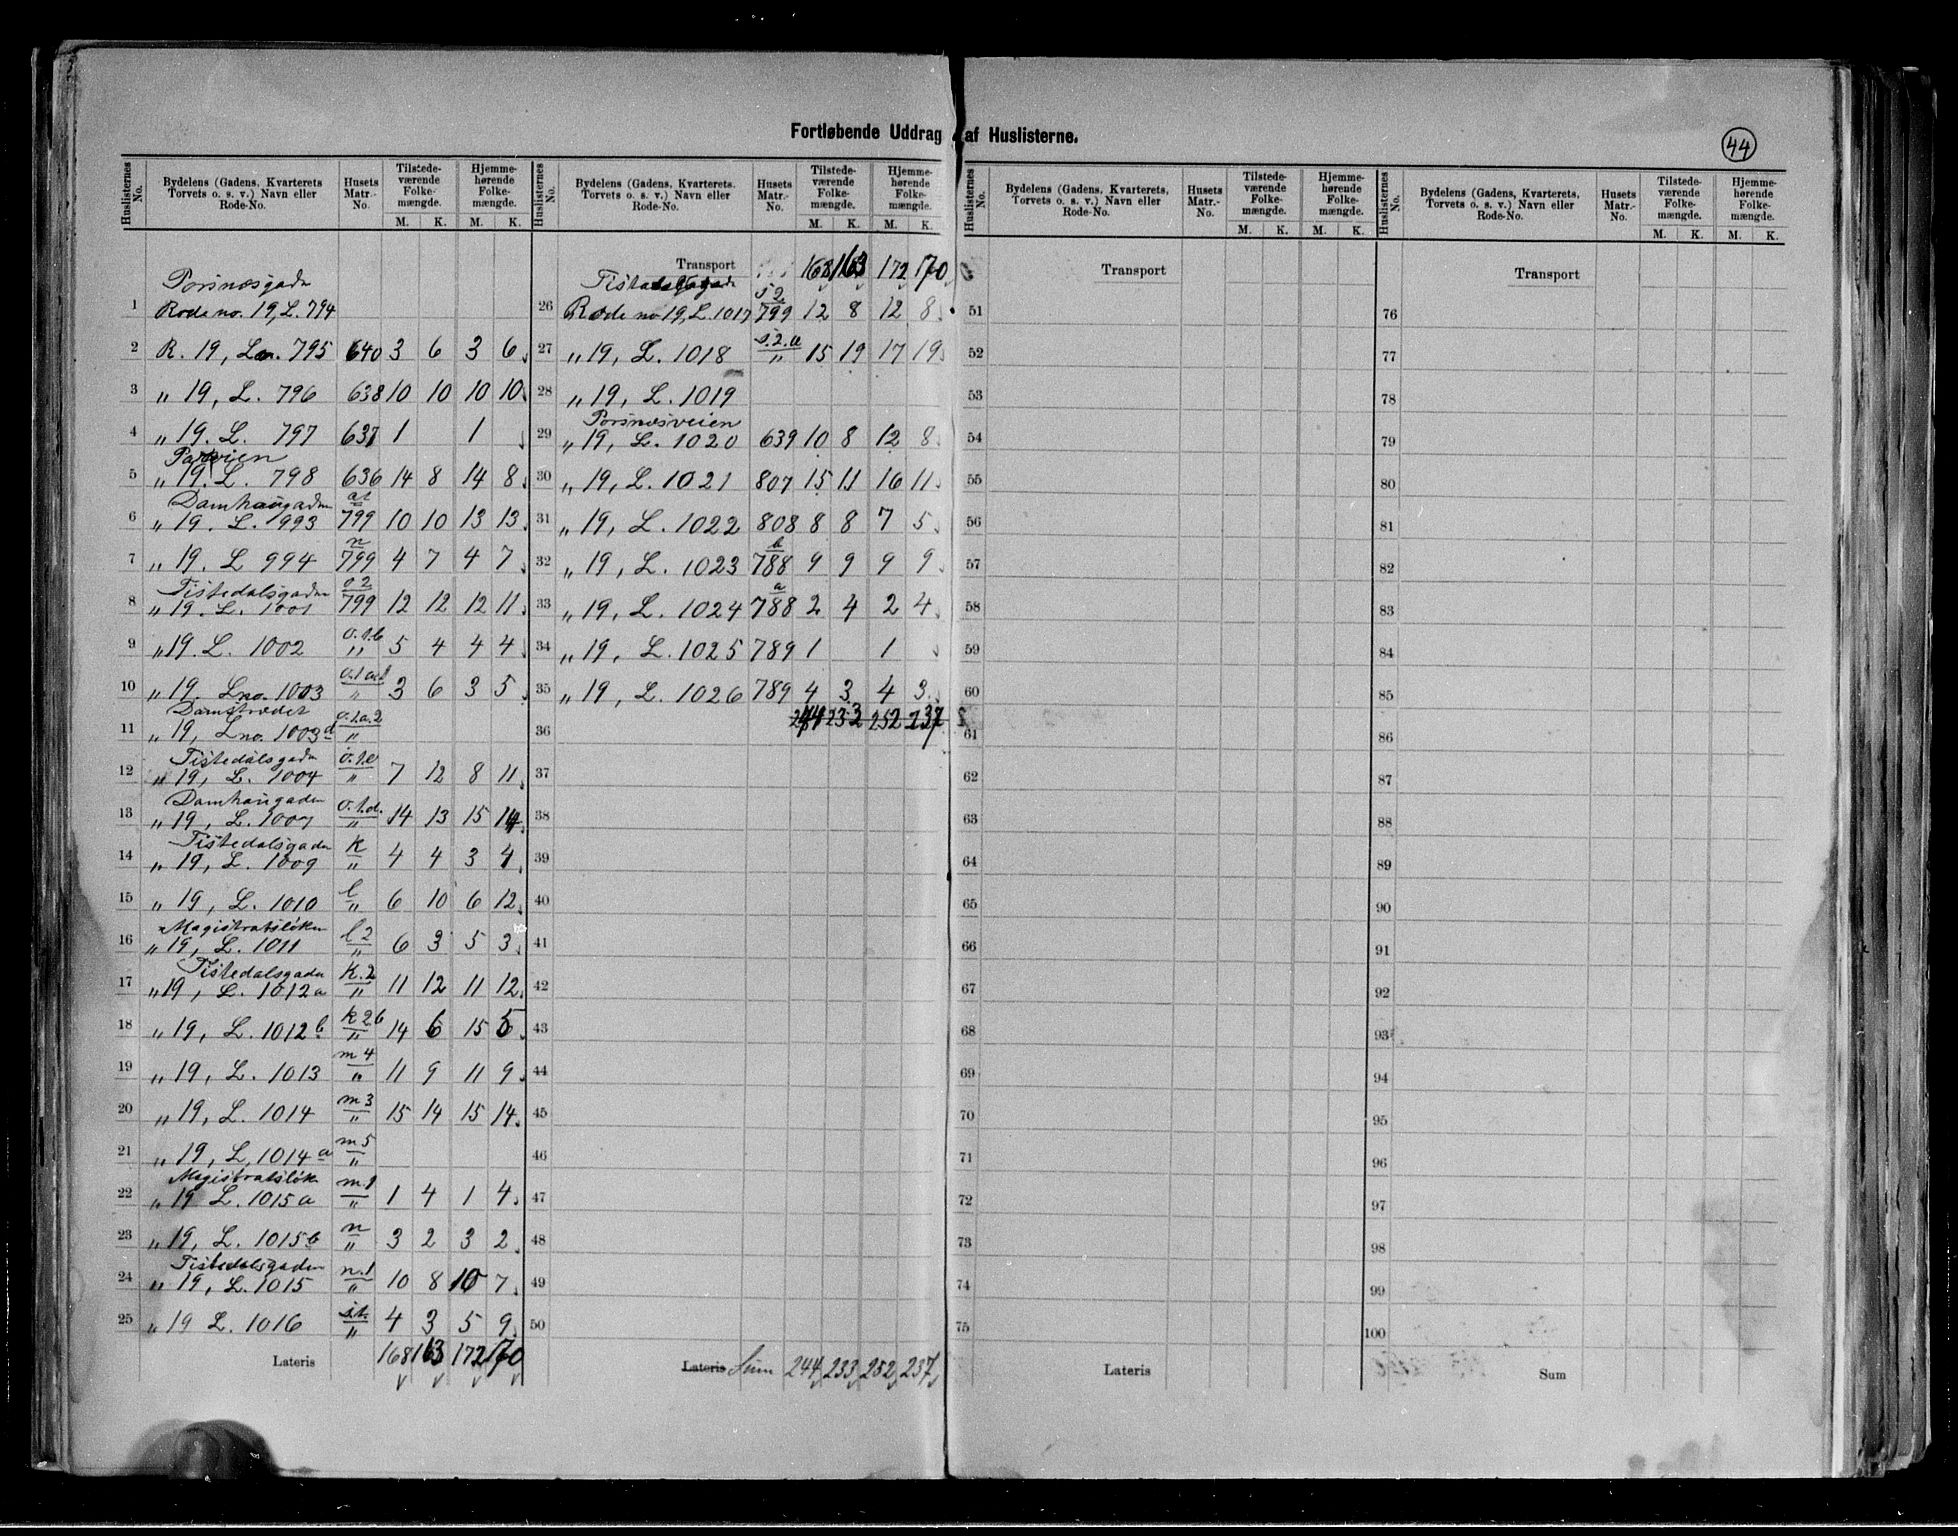 Fortløbende Uddrag af Huslisterne.
44
Huslisternes No. Bydelens (Gadens, Kvarterets Torvets o. s. v.) Navn eller Rode-No. Husets Matr.-No. Tilstedeværende Folkemængde. M. K. Hjemmehørende Folkemængde. M. K.
Porsnæsgaden
1 Rode no. 19, L. 794
2 R. 19, Ln. 795 640 3 6 3 6
3 „ 19, L. 796 638 10 10 10 10
4 „ 19. L. 797 637 1 1
5 „ 19. L. 798 636 14 8 14 8
Damhaugaden
6 „ 19. L. 993 799 10 10 13 13
7 „ 19. L 994 n 799 4 7 4 7
Tistedalsgaden
8 „ 19. L. 1001 o 2 799 12 12 12 11
9 „ 19. L. 1002 o.1.b „ 5 4 4 4
10 „ 19. Lno. 1003 „ 3 6 3 5
Damstrædet
11 „ 19, Lno. 1003d o.1.a.2 „
Tistedalsgaden
12 „ 19, L. 1004 „ 7 12 8 11
Damhaugaden
13 „ 19, L. 1007 o.1.d. „ 14 13 15 14
Tistedalsgaden
14 „ 19, L. 1009 k „ 4 4 3 4
15 „ 19, L. 1010 l „ 6 10 6 12
Magistratsløken
16 „ 19, L. 1011 l 2 „ 6 3 5 3
Tistedalsgaden
17 „ 19, L. 1012a k.2 „ 11 12 11 12
18 „ 19, L. 1012b k 2b „ 14 6 15 5
19 „ 19, L. 1013 m 4 „ 11 9 11 9
20 „ 19, L. 1014 m 3 „ 15 14 15 14
21 „ 19, L. 1014a m 5 „
Magistratsløk
22 „ 19 L. 1015a m.1 „ 1 4 1 4
23 „ 19, L. 1015b n „ 3 2 3 2
Tistedalsgaden
24 „ 19, L. 1015 n.1 „ 10 8 10 7
25 „ 19 L. 1016 „ 4 3 5 9
Lateris 168 163 172 170
Huslisternes No. Bydelens (Gadens, Kvarterets. Torvets o. s. v.) Navn eller Rode-No. Husets Matr.-No. Tilstedeværende Folkemængde. M. K. Hjemmehørende Folkemængde. M. K.
Transport 168 163 172 170
Tistedalsgaden
26 Rode no 19, L. 1017 s 2 799 12 8 12 8
27 „ 19, L. 1018 s.2.a „ 15 19 17 19
28 „ 19, L. 1019
Porsnæsveien
29 „ 19, L. 1020 639 10 8 12 8
30 „ 19, L. 1021 807 15 11 16 11
31 „ 19, L. 1022 808 8 8 7 5
32 „ 19, L. 1023 b 788 9 9 9 9
33 „ 19, L. 1024 a 788 2 4 2 4
34 „ 19, L. 1025 789 1 1
35 „ 19, L. 1026 789 4 3 4 3
36 244 233 252 237
37
38
39
40
41
42
43
44
45
46
47
48
49
50
Lateris Sum 244 233 252 237
Huslisternes No. Bydelens (Gadens, Kvarterets, Torvets o. s. v.) Navn eller Rode-No. Husets Matr.-No. Tilstedeværende Folkemængde. M. K. Hjemmehørende Folkemængde. M. K.
Transport
51
52
53
54
55
56
57
58
59
60
61
62
63
64
65
66
67
68
69
70
71
72
73
74
75
Lateris
Huslisternes No. Bydelens (Gadens, Kvarterets, Torvets o. s. v.) Navn eller Rode-No. Husets Matr.-No. Tilstedeværende Folkemængde. M. K. Hjemmehørende Folkemængde. M. K.
Transport
76
77
78
79
80
81
82
83
84
85
86
87
88
89
90
91
92
93
94
95
96
97
98
99
100
Sum